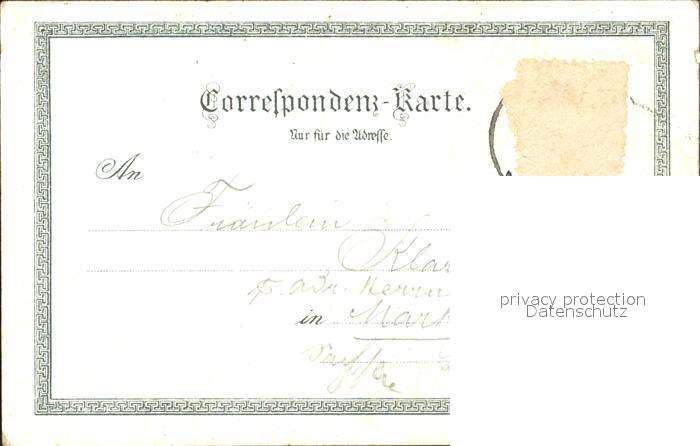 Correspondenz-Karte.
Nur für die Adresse.
An
Fräulein
Klar
Adr. Herrn
in Mark
privacy protection
Datenschutz